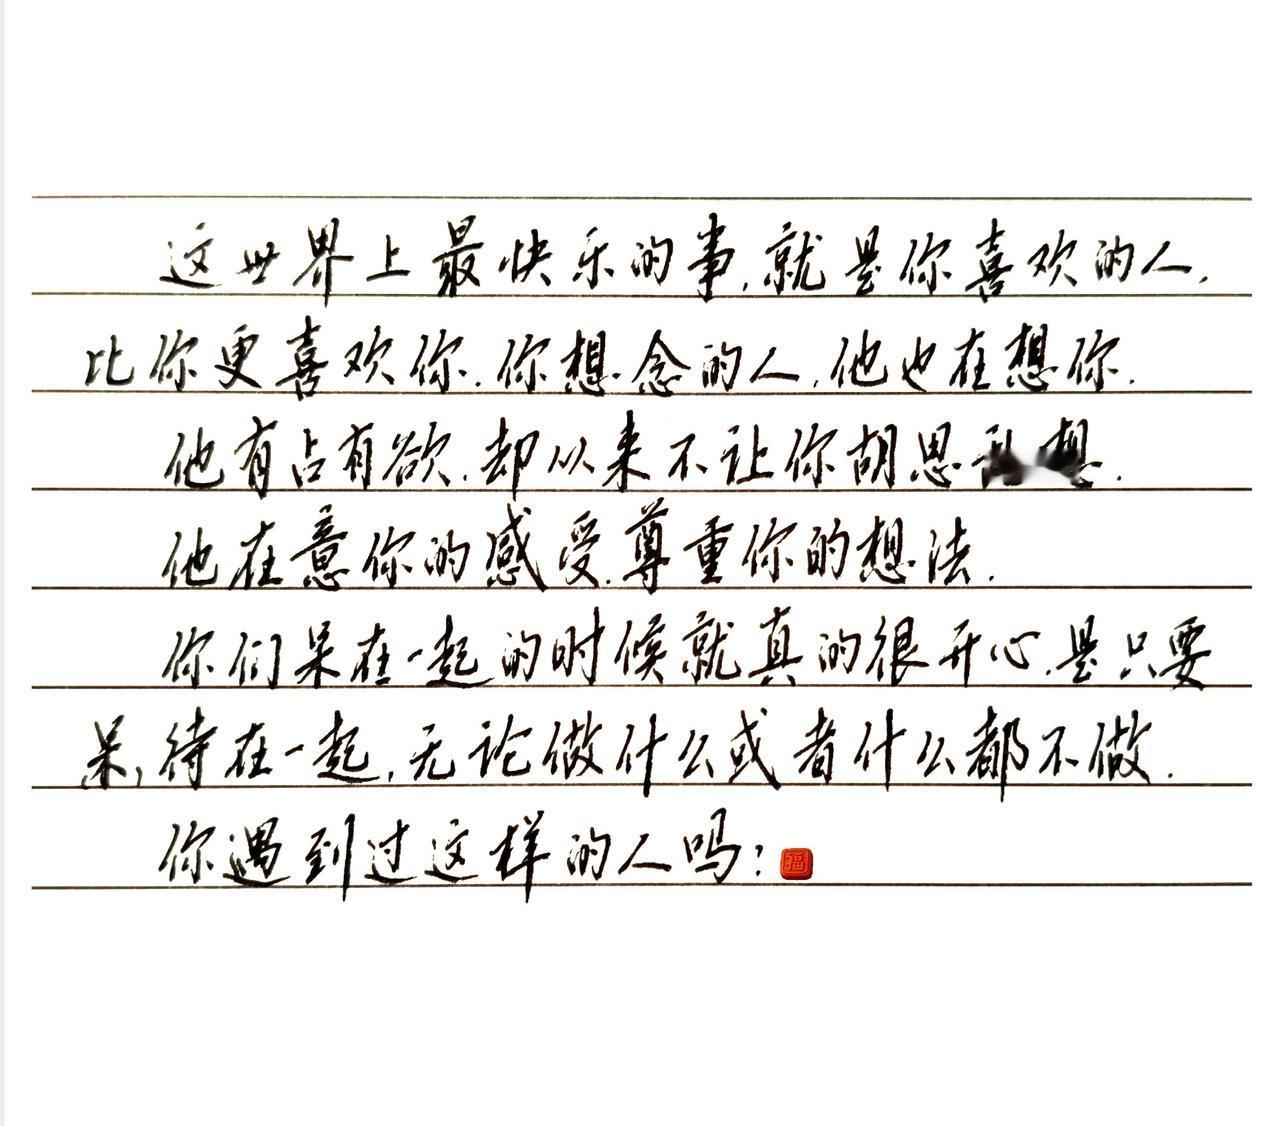 这世界上最快乐的事,就是你喜欢的人,
比你更喜欢你.你想念的人,他也在想你.
他有占有欲.却以来不让你胡思乱想.
他在意你的感受.尊重你的想法.
你们呆在一起的时候就真的很开心.是只要
呆,待在一起,无论做什么或者什么都不做.
你遇到过这样的人吗?
福